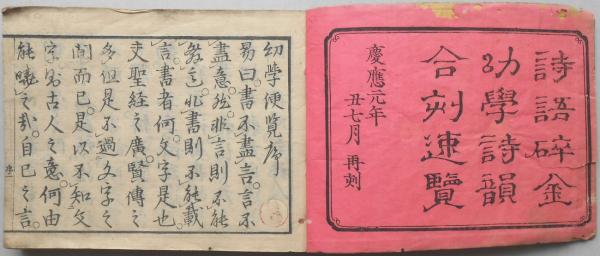 詩語碎金
幼學詩韻
合刻速覽
慶應元年
丑七月 再刻
幼學便覽序
易曰。書不盡言。言不
盡意。然非言則不能
書者何。文字是也。
夫聖經之廣賢傳之
多。但是不過文字之
間而已。是以不知文
字。則古人之意。何由
能曉之哉。自己之言。